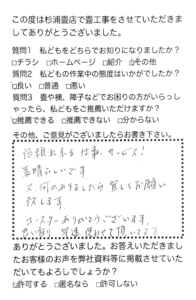 この度は杉浦畳店で畳工事をさせていただきま
してありがとうございました。
質問1 私どもをどちらでお知りになりましたか？
□チラシ □ホームページ □紹介 □その他
質問2 私どもの作業中の態度はいかがでしたか？
□良い □普通 □悪い
質問3 畳や襖、障子などでお困りの方がいらっし
ゃったら、私どもをご推薦いただけますか？
□推薦できる □推薦できない □分からない
その他、ご意見がございましたらお書き下さい。
信頼出来る仕事、サービス！
素晴らしいです
又、何かありましたら宜しくお願い
致します
コースターありがとうございます。
早速使わせて頂いてます
ありがとうございました。お答えいただきまし
たお客様のお声を弊社資料等に掲載させていた
だいてもよろしでしょうか？
□許可する □匿名なら □許可しない